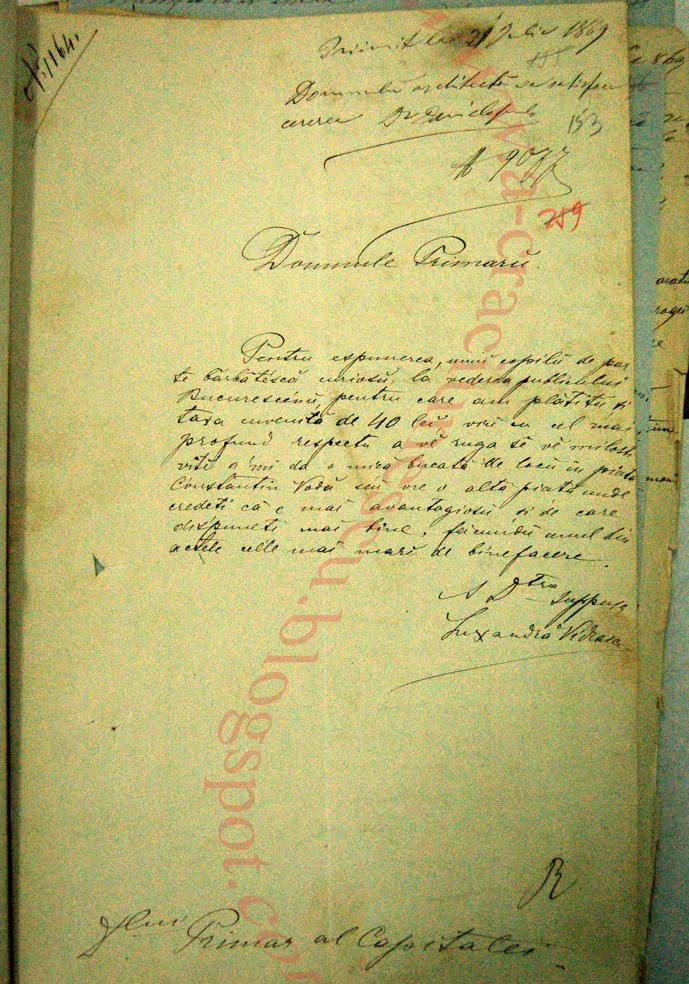 N. 1164.
Priimit la 21 Iulie 1869
Domnulu architectu sa satisfacă
cererea
153
759
Domnule Primarŭ.
Pentru espunerea, unuĭ copilŭ de par
te bărbătéscă curiosŭ, la vederea publiculuĭ
Bucurescénŭ, pentru care am plătitŭ și
taxa cuvenită de 40 leĭ, viŭ cu cel mai
profund respectŭ a vĕ ruga sĕ vĕ milosti
viți a'mĭ da o mică bucată de locŭ în piața
Constantin Vodă séŭ vre o altă piață unde
credeți că e maĭ avantagiosŭ și de care
dispuneți maĭ bine, făcendŭ unul din
actele celle maĭ marĭ de binefacere.
A Dtră Suppusă
Luxandra Vidrasca
R
Dluĭ Primar al Capitaleĭ
craciunescu.blogspot.com